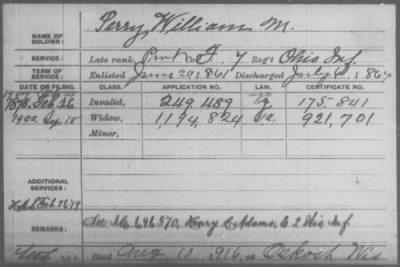 Perry, William M.
NAME OF SOLDIER:
SERVICE: Late rank, Co. F, 7 Reg't Ohio Inf.
TERM OF SERVICE: Enlisted June 20, 1861 Discharged July 6, 1864
DATE OF FILING. CLASS. APPLICATION NO. LAW. CERTIFICATE NO.
1878, Feb. 26 Invalid, 249,489 175,841
Widow, 1,194,824 921,701
Minor,
ADDITIONAL SERVICES:
REMARKS: 696570, Henry C Adams, C 2 Wis Inf
Died Aug 10, 1916, at Oskosh Wis